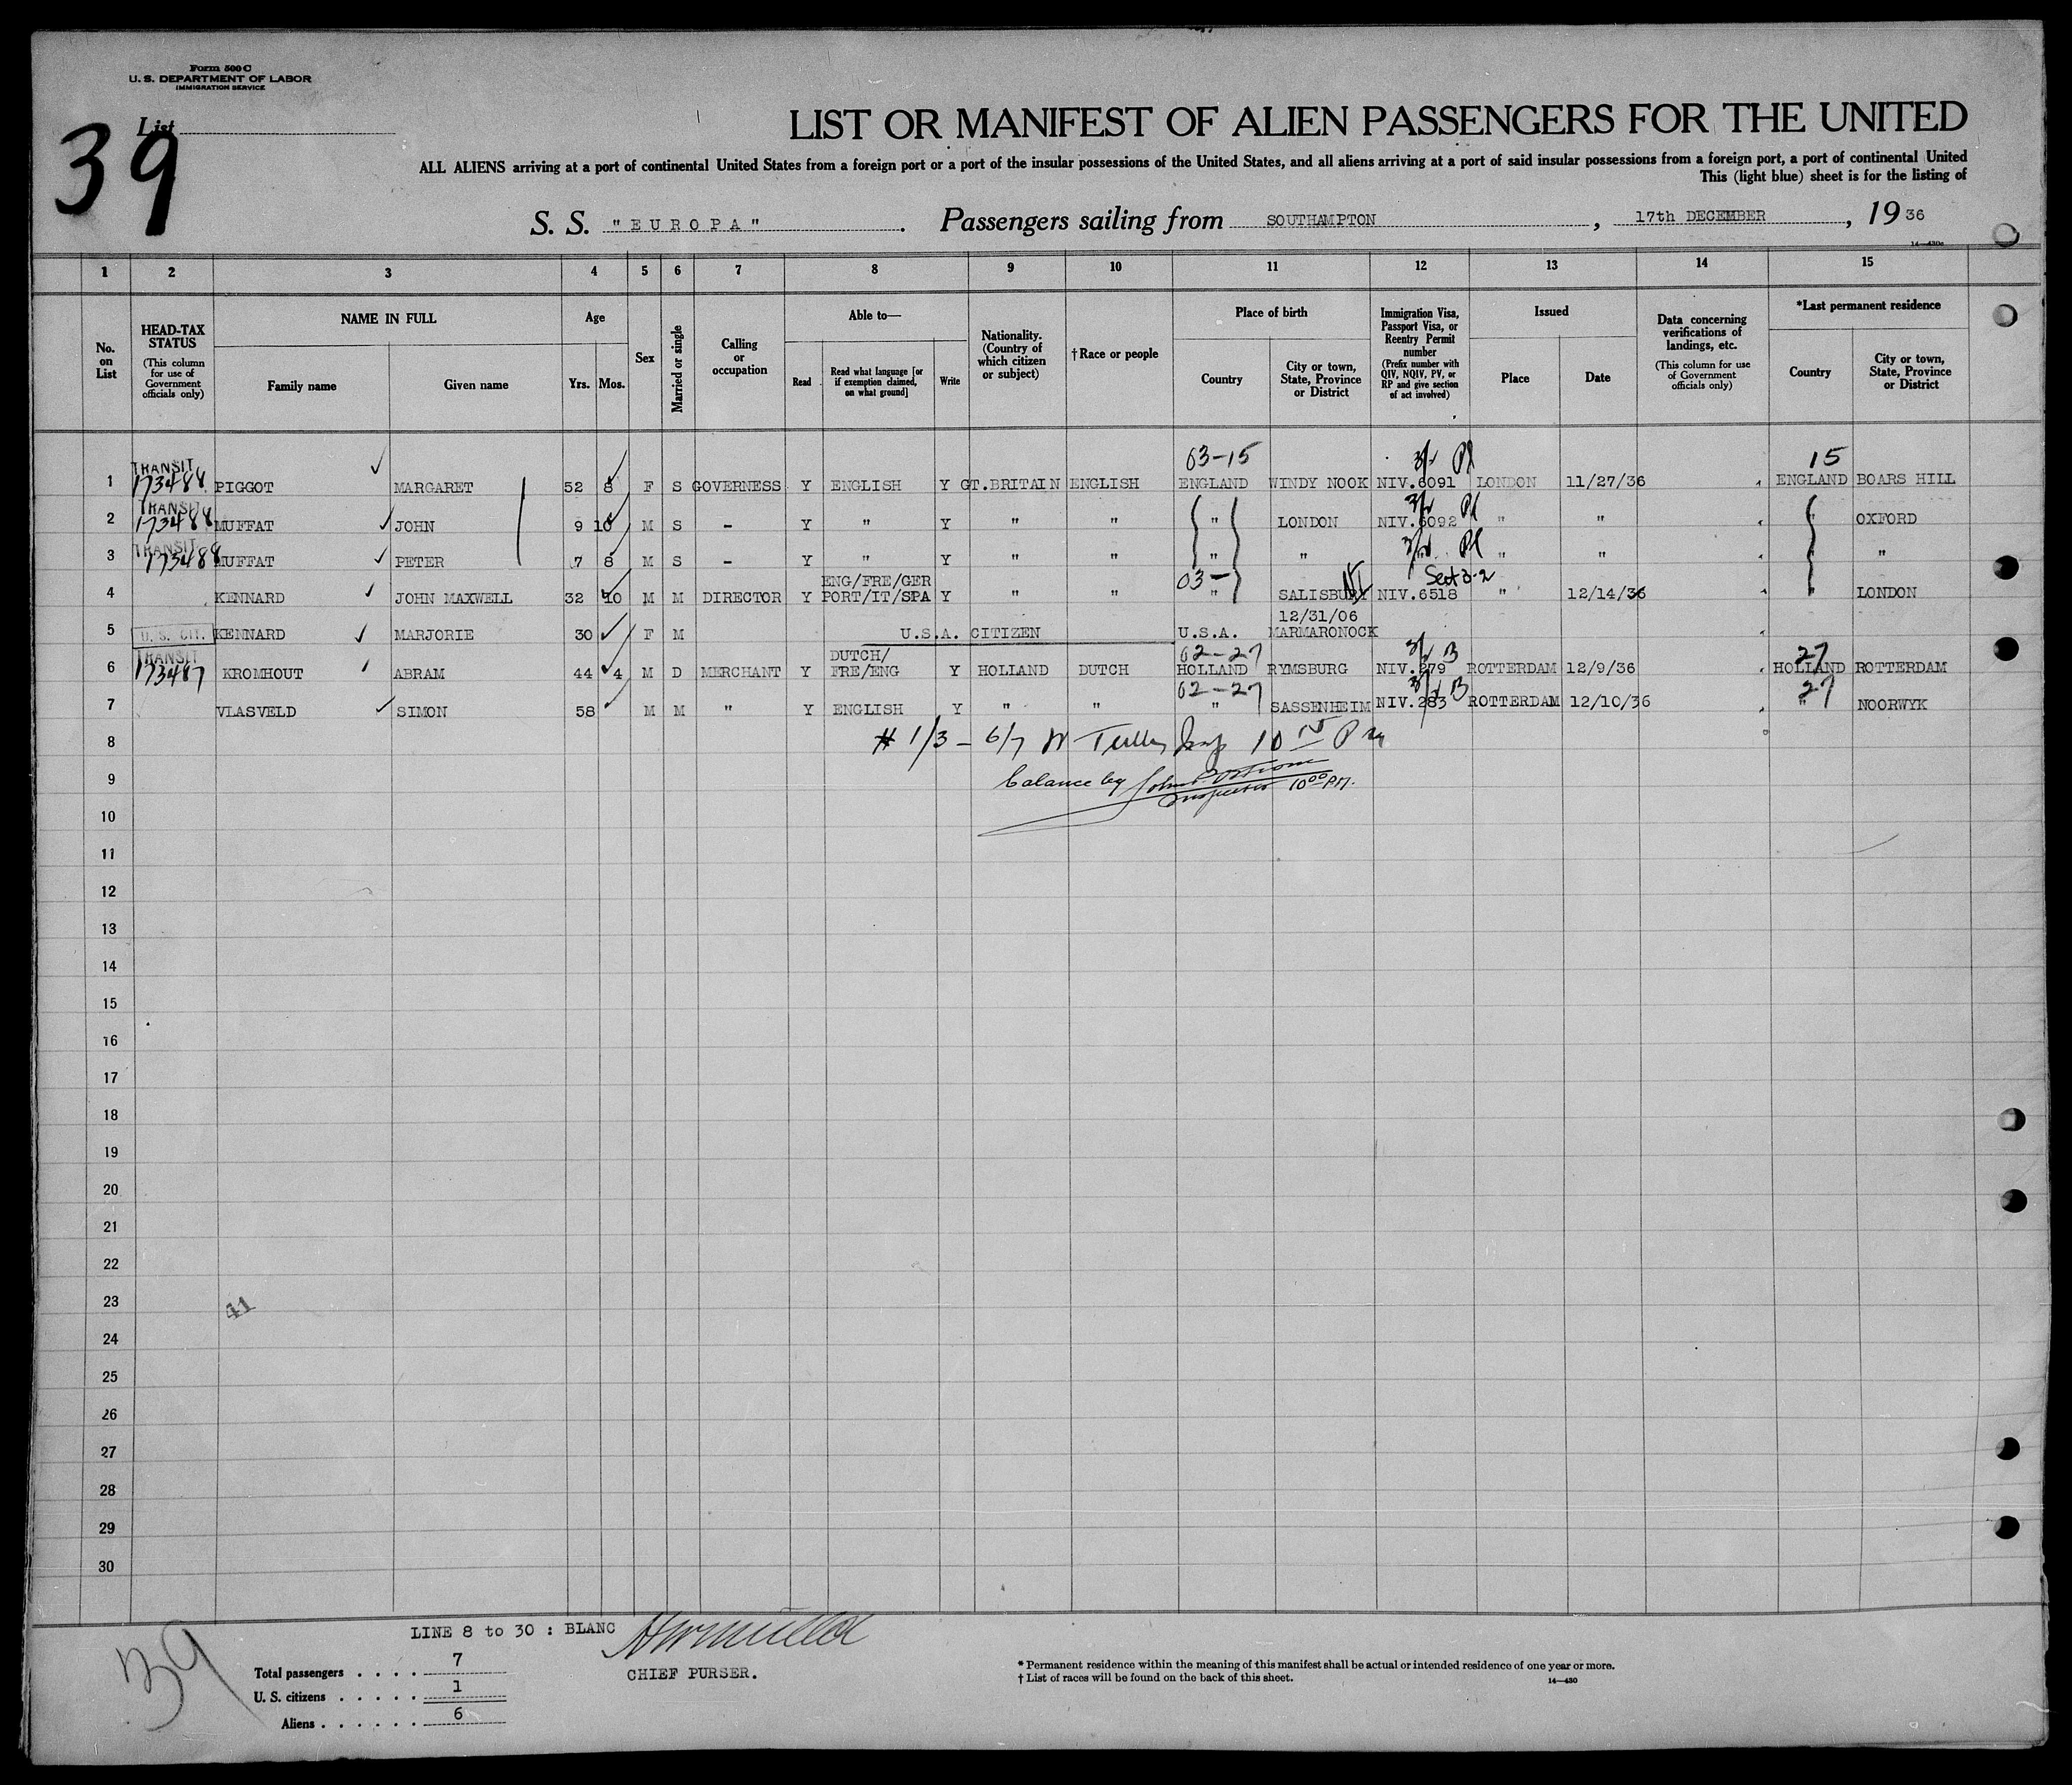 Form 500 C
U. S. DEPARTMENT OF LABOR
IMMIGRATION SERVICE
List
39
LIST OR MANIFEST OF ALIEN PASSENGERS FOR THE UNITED
ALL ALIENS arriving at a port of continental United States from a foreign port or a port of the insular possessions of the United States, and all aliens arriving at a port of said insular possessions from a foreign port, a port of continental United
This (light blue) sheet is for the listing of
S. S. "EUROPA". Passengers sailing from SOUTHAMPTON, 17th DECEMBER, 1936
1 2 3 4 5 6 7 8 9 10 11 12 13 14 15
No. on List
HEAD-TAX STATUS (This column for use of Government officials only)
NAME IN FULL
Family name Given name
Age
Yrs. Mos.
Sex
Married or single
Calling or occupation
Able to—
Read Read what language [or if exemption claimed, on what ground] Write
Nationality. (Country of which citizen or subject)
†Race or people
Place of birth
Country City or town, State, Province or District
Immigration Visa, Passport Visa, or Reentry Permit number (Prefix number with QIV, NQIV, PV, or RP and give section of act involved)
Issued
Place Date
Data concerning verifications of landings, etc. (This column for use of Government officials only)
*Last permanent residence
Country City or town, State, Province or District
03-15 15
1 TRANSIT 173488 PIGGOT MARGARET 52 8 F S GOVERNESS Y ENGLISH Y GT.BRITAIN ENGLISH ENGLAND WINDY NOOK NIV.6091 LONDON 11/27/36 ENGLAND BOARS HILL
2 TRANSIT 173488 MUFFAT JOHN 9 10 M S - Y " Y " " " LONDON NIV.6092 " " " OXFORD
3 TRANSIT 173488 MUFFAT PETER 7 8 M S - Y " Y " " " " " " " " "
03- Sect 3-2
4 KENNARD JOHN MAXWELL 32 10 M M DIRECTOR Y ENG/FRE/GER PORT/IT/SPA Y " " " SALISBURY NIV.6518 " 12/14/36 " LONDON
5 U.S. CIT. KENNARD MARJORIE 30 F M U.S.A. CITIZEN U.S.A. 12/31/06 MARMARONOCK
02-27 27
6 TRANSIT 173487 KROMHOUT ABRAM 44 4 M D MERCHANT Y DUTCH/ FRE/ENG Y HOLLAND DUTCH HOLLAND RYMSBURG NIV.279 ROTTERDAM 12/9/36 HOLLAND ROTTERDAM
02-27 27
7 VLASVELD SIMON 58 M M " Y ENGLISH Y " " " SASSENHEIM NIV.283 ROTTERDAM 12/10/36 " NOORWYK
8 # 1/3 - 6/7
9 balance by John Inspector 10 00 PM.
10
11
12
13
14
15
16
17
18
19
20
21
22
23 41
24
25
26
27
28
29
30
LINE 8 to 30 : BLANC
CHIEF PURSER.
39
Total passengers . . . . 7
U. S. citizens . . . . . 1
Aliens . . . . . . 6
* Permanent residence within the meaning of this manifest shall be actual or intended residence of one year or more.
† List of races will be found on the back of this sheet.
14—430